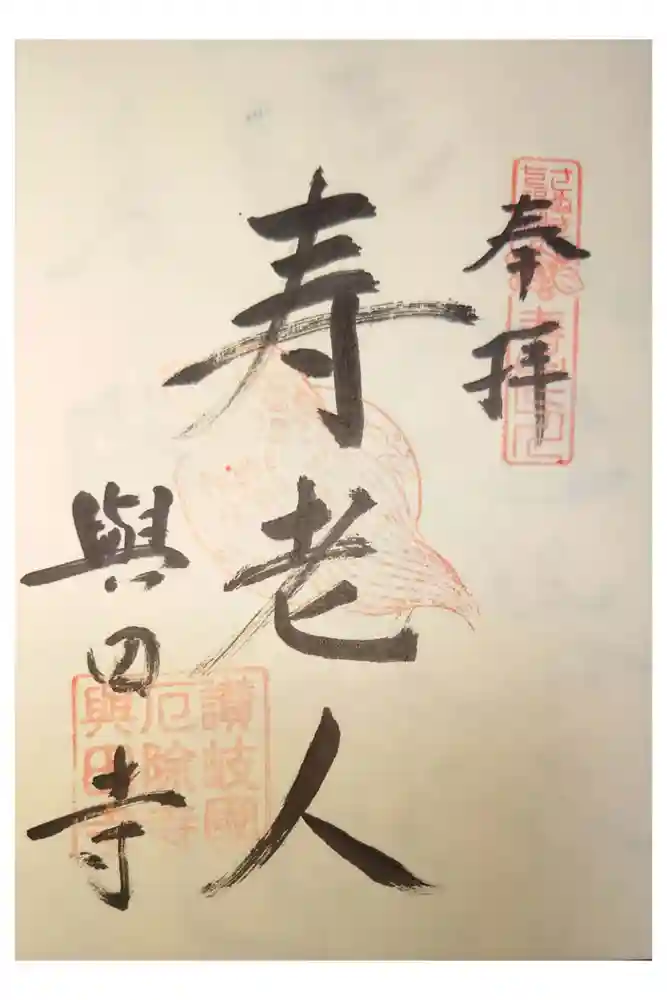 奉拝
寿老人
與田寺
讃岐國
厄除寺
與田寺